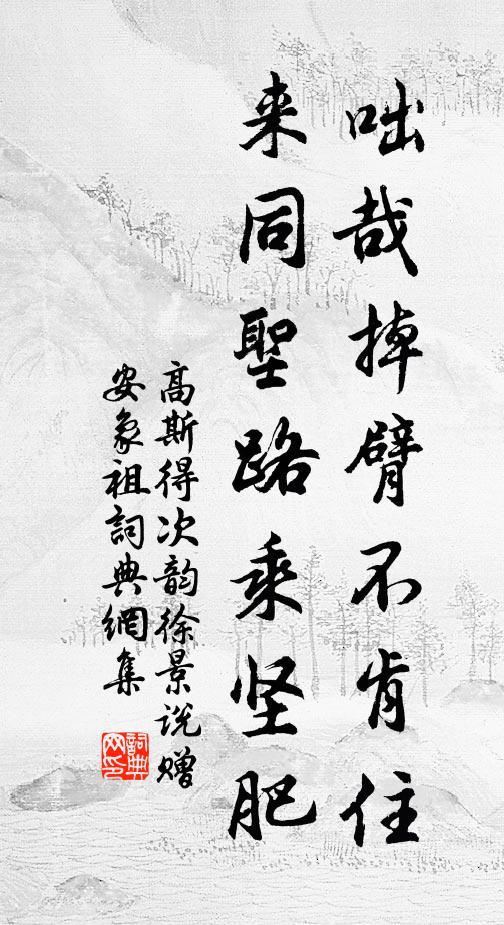 咄哉掉臂不肯住
来同聖路乘坚肥
高斯得次韵徐景说赠
安象祖詞典網集
詞典网印